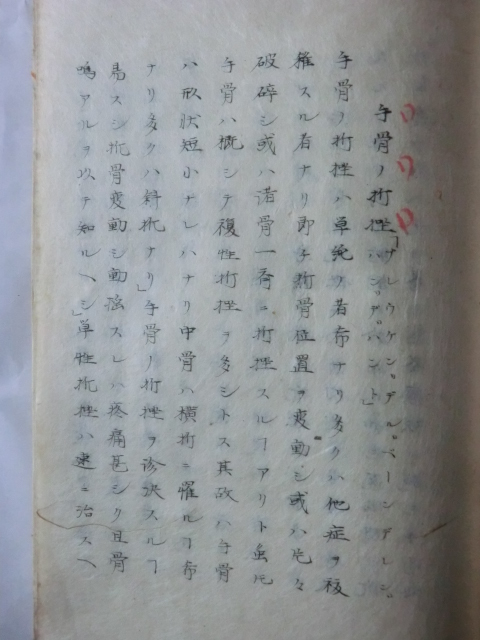 手骨ノ折挫「ブレウケン、デル、ベーンデレン、ハン、デ、ハント」
手骨ノ折挫ハ単免ノ者希ナリ多クハ他症ヲ複
雑スル者ナリ即チ折骨位置ヲ変動シ或ハ片々
破碎シ或ハ諸骨一斉ニ折挫スルヿアリト虽モ
手骨ハ概シテ複性折挫ヲ多シトス其故ハ手骨
ハ形状短小ナレハナリ中骨ハ横折ニ罹ルヿ希
ナリ多クハ斜折ナリ」手骨ノ折挫ヲ診決スルヿ
易スシ折骨変動シ動揺スレハ疼痛甚シク且骨
鳴アルヲ以テ知ルヘシ」単性折挫ハ速ニ治スヘ